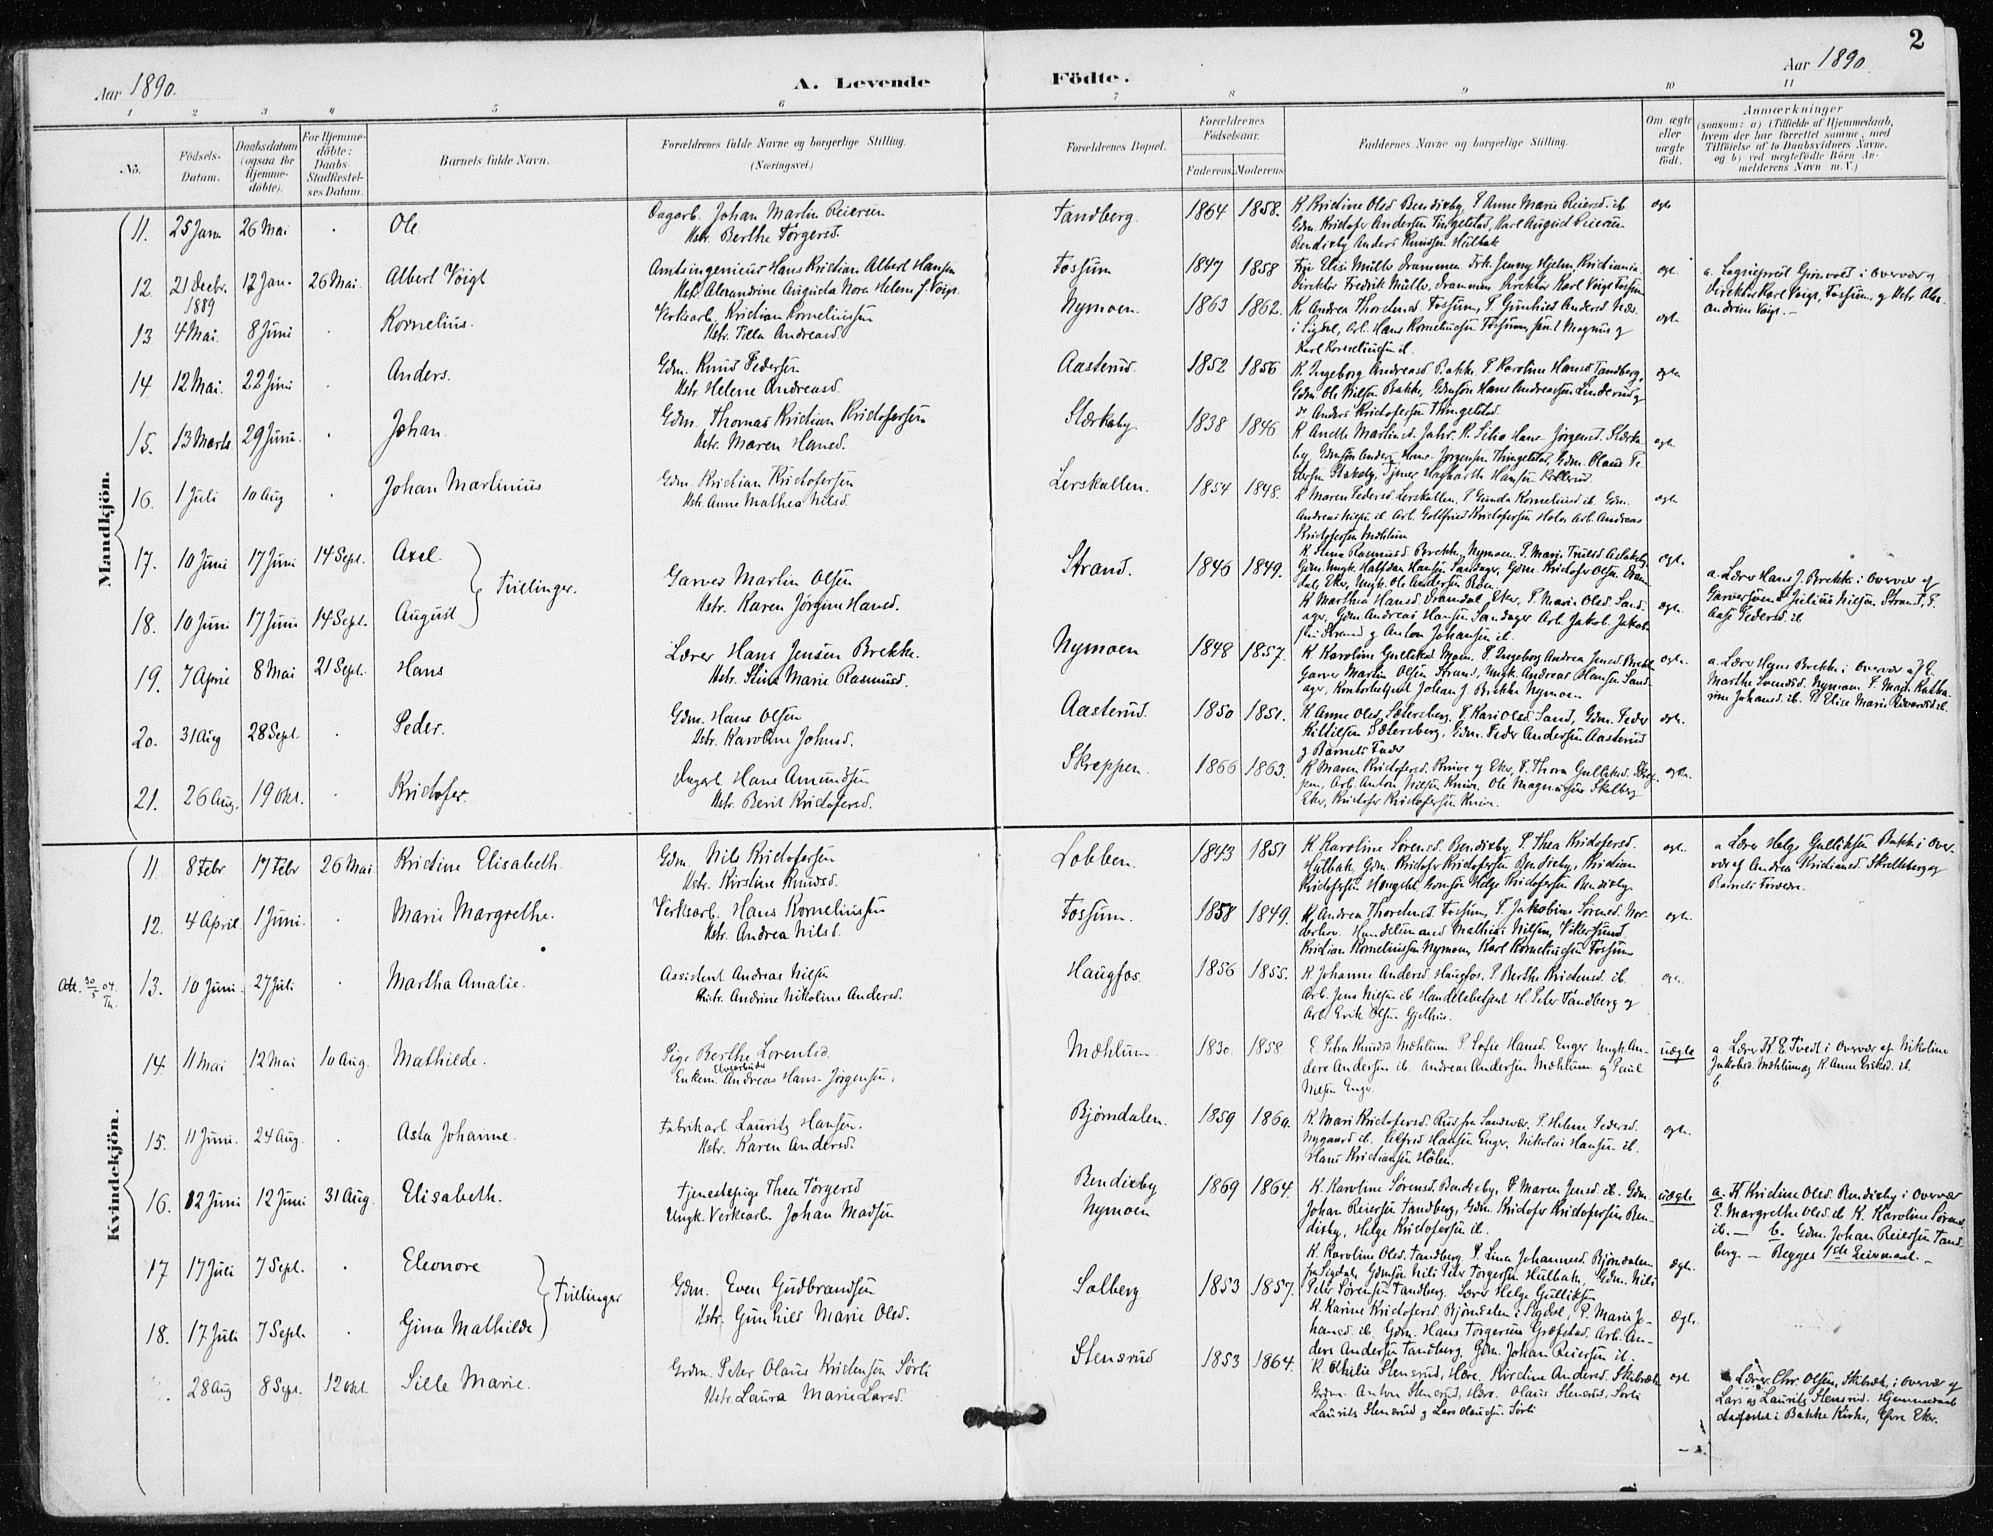 2
Aar 1890.
A. Levende Födte.
Aar 1890.
1 2 3 4 5 6 7 8 9 10 11
No.
Födsels-Datum.
Daabsdatum (ogsaa for Hjemmedöbte).
For Hjemmedöbte: Daabs Stadfæstelses Datum.
Barnets fulde Navn.
Forældrenes fulde Navne og borgerlige Stilling. (Næringsvei.)
Forældrenes Bopæl.
Forældrenes Födselsaar.
Faderens. Moderens.
Faddernes Navne og borgerlige Stilling.
Om ægte eller uægte födt.
Anmærkninger
(saasom: a) i Tilfælde af Hjemmedaab, hvem der har forrettet samme, med Tilföielse af to Daabsvidners Navne, og b) ved uægtefödte Börn Anmelderens Navn m. V.)
Mandkjön.
11. 25 Janr 26 Mai . Ole Dagarb. Johan Martin Reiersen Tandberg. 1864 1858. K Kristine Olsd. Bendixby P. Anne Marie Reiersd. ib egte
Hstr. Berthe Torgersd. Gdm. Kristofer Andersen Tingelstad, Karl August Reiersen
Bendixby Anders Knudsen Hulbak
12. 21 Decbr. 1889 12 Jan. 26 Mai. Albert Voigt Amtsingeniør Hans Kristian Albert Hansen Fossum 1847 1858 Frk. Jenny Hjelm, Kristiania egt.
Hstr. Alexandrine Augusta Nora Helene f. Voigt. Direktør Fredrik Müller, Drammen Direktør Karl Voigt Fossum
Direktør Karl Voigt, Fossum, og Hstr. Alexandrine Voigt.
13 4 Mai. 8 Juni Kornelius. Verksarb. Kristian Korneliussen Nymoen 1863 1862. K Andrea Thorednsd. Fossum, P. Gunhild Andersd Næs. egte
Hstr. Tilla Andreasd. i Sigdal, Arb. Hans Korneliussen Fossum, Magnus og
Karl Korneliussen ib.
14 12 Mai. 22 Juni Anders. Gdm. Knud Pedersen Aasterud 1852 1856 K. Ingeborg Andreasd Bakke P. Karoline Hansd Tandberg, egte
Hstr. Helene Andreasd. Gdm. Ole Nilsen Bakke, Gdmsøn Hans Andreassen Linderud og
Anders Kristofersen Thingelstad.
15. 13 Marts 29 Juni. . Johan. Gdm. Thomas Kristian Kristofersen Stærkeby. 1838 1846 egte
Hstr. Maren Hansd. by Gdmsøn Anders Hans-Jørgensen Thingelstad, Gdm. Olaus Pedersen
16. 1 Juli 10 Aug . Johan Martinius Gdm. Kristian Kristofersen Lerskallen. 1854 1848. K Maren Pedersd Lerskallen. P Gunda Korneliusd ib. Gdm. egte
Hstr. Anne Mathea Nilsd. Andreas Nilsen ib. Arb. Gottfried Kristofersen Holen Arb. Andreas
Kristofersen Mæhlum
17. 10 Juni 17 Juni 14 Sept. Axel Tvillinger. Garver Martin Olsen Strand. 1846 1849. K Stina Rasmusd. Brekke, Nymoen. P. Marie Trulsd. egte
Hstr. Karen Jørgine Hansd. Gdm. Ungk. Halfdan Hansen Sandager, Gdm. Kristofer Olsen
Eker, Ungk. Ole Andersen Roen.
a. Lærer Hans J. Brekke i Overvær af
Garversvend Julius Nilsen Strand, P.
Aase Pedersd. ib
18. 10 Juni 17 Juni 14 Sept. August K Marthea Hansd. Eker, P. Marie Olsd. Sandager, egte.
Gdm. Andreas Hansen Sandager Arb. Jakob Jakobsen
Strand og Anton Johansen ib.
19. 7 April 8 Mai 21 Sept. Hans Lærer Hans Jensen Brekke. Nymoen 1848 1857. K Karoline Gulliksd Moen. P. Ingeborg Andrea Jensd. Brekke egte.
Hstr. Stina Marie Rasmusd. Garver Martin Olsen Strand, Ungk. Andreas Hansen Sandager,
Kontorbetjent Johan J. Brekke Nymoen
a. Lærer Hans Brekke i Overvær af E.
Marthe Svendsd. Nymoen P. Maren Kathrine Johansd. ib. P. Elise Marie ib.
20. 31 Aug 28 Sept. . Peder. Gdm. Hans Olsen Aasterud. 1850 1851. K Anne Olsd. Sætersberg. P. Kari Olsd. Sand, Gdm. Peder egte.
Hstr. Karoline Johnsd. Kittilsen Sætersberg, Gdm. Peder Andersen Aasterud
og Barnets Fader
21. 26 Aug. 19 Okt. . Kristofer. Dagarb Hans Amundsen Skreppen. 1866 1863. K Maren Kristofersd. Knive og Eker, P. Thora Gulliksd. egte.
Hstr. Berit Kristofersd. Arb. Anton Nilsen Knive, Ole Magnussen Skalberg
Eker, Kristofer Kristofersen Knive.
Kvindekjön.
11. 8 Febr 17 Febr 26 Mai Kristine Elisabeth. Gdm. Nils Kristofersen Lobben. 1843 1851 K Karoline Sørensd. Bendixby. P. Thea Kristofersd. egte.
Hstr. Kirstine Knudsd. Hulbak, Gdm. Kristofer Kristofersen Bendixby, Kristian
Kristofersen Gdmsøn Helge Kristofersen Bendixby.
a Lærer Helge Gulliksen Bakke i Overvær af Andrea Kristiansd. og
Barnets Forældre.
12. 4 April. 1 Juni. . Marie Margrethe. Verksarb. Hans Korneliussen Fossum. 1858 1849. K. Andrea Thorednsd. Fossum, P. Jakobine Sørensd. Norderhov. egte.
Hstr. Andrea Nilsd. Handelsmand Mathias Nilsen, Vikersund
Kristian Korneliussen Nymoen, Karl Korneliussen Fossum
Att. 30/5 04. Th.
13. 10 Juni. 27 Juli . Martha Amalie. Assistent Andreas Nilsen Haugfos. 1856 1855. K Johanne Andersd Haugfos. P. Berthe Kristensd. ib.
Hstr. Andrine Nikoline Andersd. Arb. Jens Nilsen ib. Handelsbetjent H. Peter Tandberg og
Arb. Erik Olsen Gjelhus.
14. 11 Mai 12 Mai 10 Aug. Mathilde. Pige Berthe Lorentsd. Mæhlum 1830. 1858 E. Petra Knudsd Mæhlum. P. Sofie Hansd. Enger. Ungk. Anders uægte
Enkem. Elvearbeider Andreas Hans-Jørgensen. Andersen ib. Andreas Andersen Mæhlum og Paul
Nilsen Enger.
a. Lærer K E Tvedt i Overvær af Nikoline
Jakobsd. Mæhlum og K Anne Eriksd. ib.
15. 11 Juni. 24 Aug. . Asta Johanne. Fabrikarb. Lauritz Hansen. Bjørndalen. 1859 1860. K. Mari Kristofersd. Rud fra Sandsvær. P. Helene Pedersd. egte.
Hstr. Karen Andersd. Nygaard ib. Alfred Hansen Enger, Nikolai Hansen ib.
Hans Kristiansen Holen.
16. 12 Juni 12 Juni 31 Aug. Elisabeth. Tjenestepige Thea Torgersd Bendixby 1869 1864. K. Karoline Sørensd Bendixby, P. Maren Jensd. ib. Gdm. uægte
Ungk. Verksarb. Johan Madsen Nymoen Johan Reiersen Tandberg, Gdm. Kristofer Kristofersen Bendixby, Helge Kristofersen ib.
a. K Kristine Olsd. Bendixby i Overvær
E. Margrethe Olsd. ib K. Karoline Sørensd.
ib. — b. Gdm. Johan Reiersen Tandberg. — Begges 1ste Leiermaal. —
17 17 Juli 7 Sept. . Eleonore Tvillinger Gdm. Even Gudbrandsen Solberg 1853 1857. K. Karoline Olsd. Tandberg P. Lina Johannesd. Bjørndalen ægte.
Hstr. Gunhild Marie Olsd. fra Sigdal, Gdmsøn Nils Peter Torgersen Hulbak, Gdm. Nils
Peter Sørensen Tandberg. Lærer Helge Gulliksen
18. 17 Juli 7 Sept. . Gina Mathilde K. Karine Kristofersd. Bjørndalen i Sigdal, P. Marie Johansd. ib. Gdm. Hans Torgersen Græfstad. Arb. Anders ægte.
Andersen Tandberg Gdm. Johan Reiersen ib.
28 Aug 8 Sept. 12 Okt. Sille Marie. Grdm. Peter Olaus Kristensen Sørli Stensrud 1853 1864. Stensrud, Kirstine Andersd. egte
Hstr. Laura Marie Larsd. Grdm. Anton Stensrud, Olaus Stensrud, Sørli
Laurits Stensrud og Lars Sørli
Lærer Chr. Olsen, i Overvær af
Lars og Laurits Stensrud. Hjemmedaab
stadfæstet i Bakke Kirke, Øvre Eker.